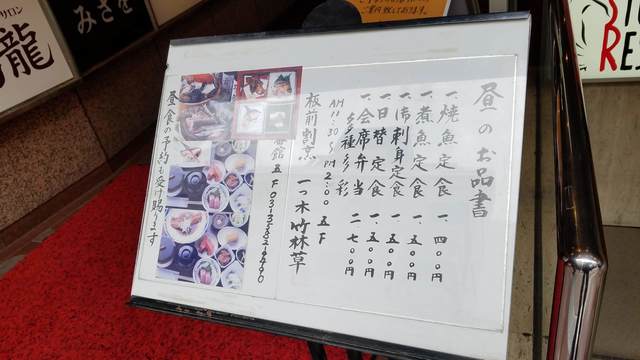 昼のお品書
一、焼魚定食 一、四〇〇円
一、煮魚定食 一、五〇〇円
一、御刺身定食 一、五〇〇円
一、日替定食 一、五〇〇円
一、会席弁当 二、七〇〇円
多種多彩
AM11:30〜PM2:00 五F
板前割烹 一つ木 竹林草
昼食の予約も受け賜ります
みさを
サロン
龍